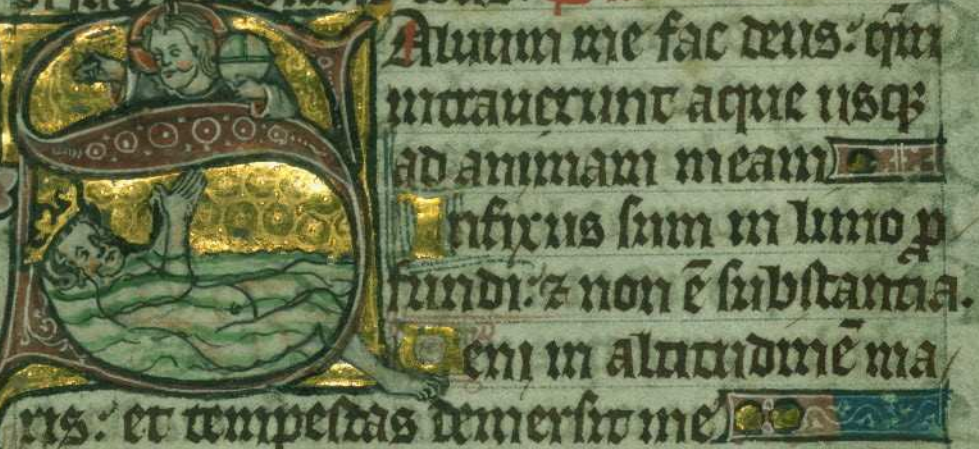 Saluum me fac deus: qm̄
intrauerunt aque usq3
ad animam meam
Infixus sum in limo ꝓ
fundi: ⁊ non ē substantia.
Ueni in altitudinē ma
ris: et tempestas demersit me